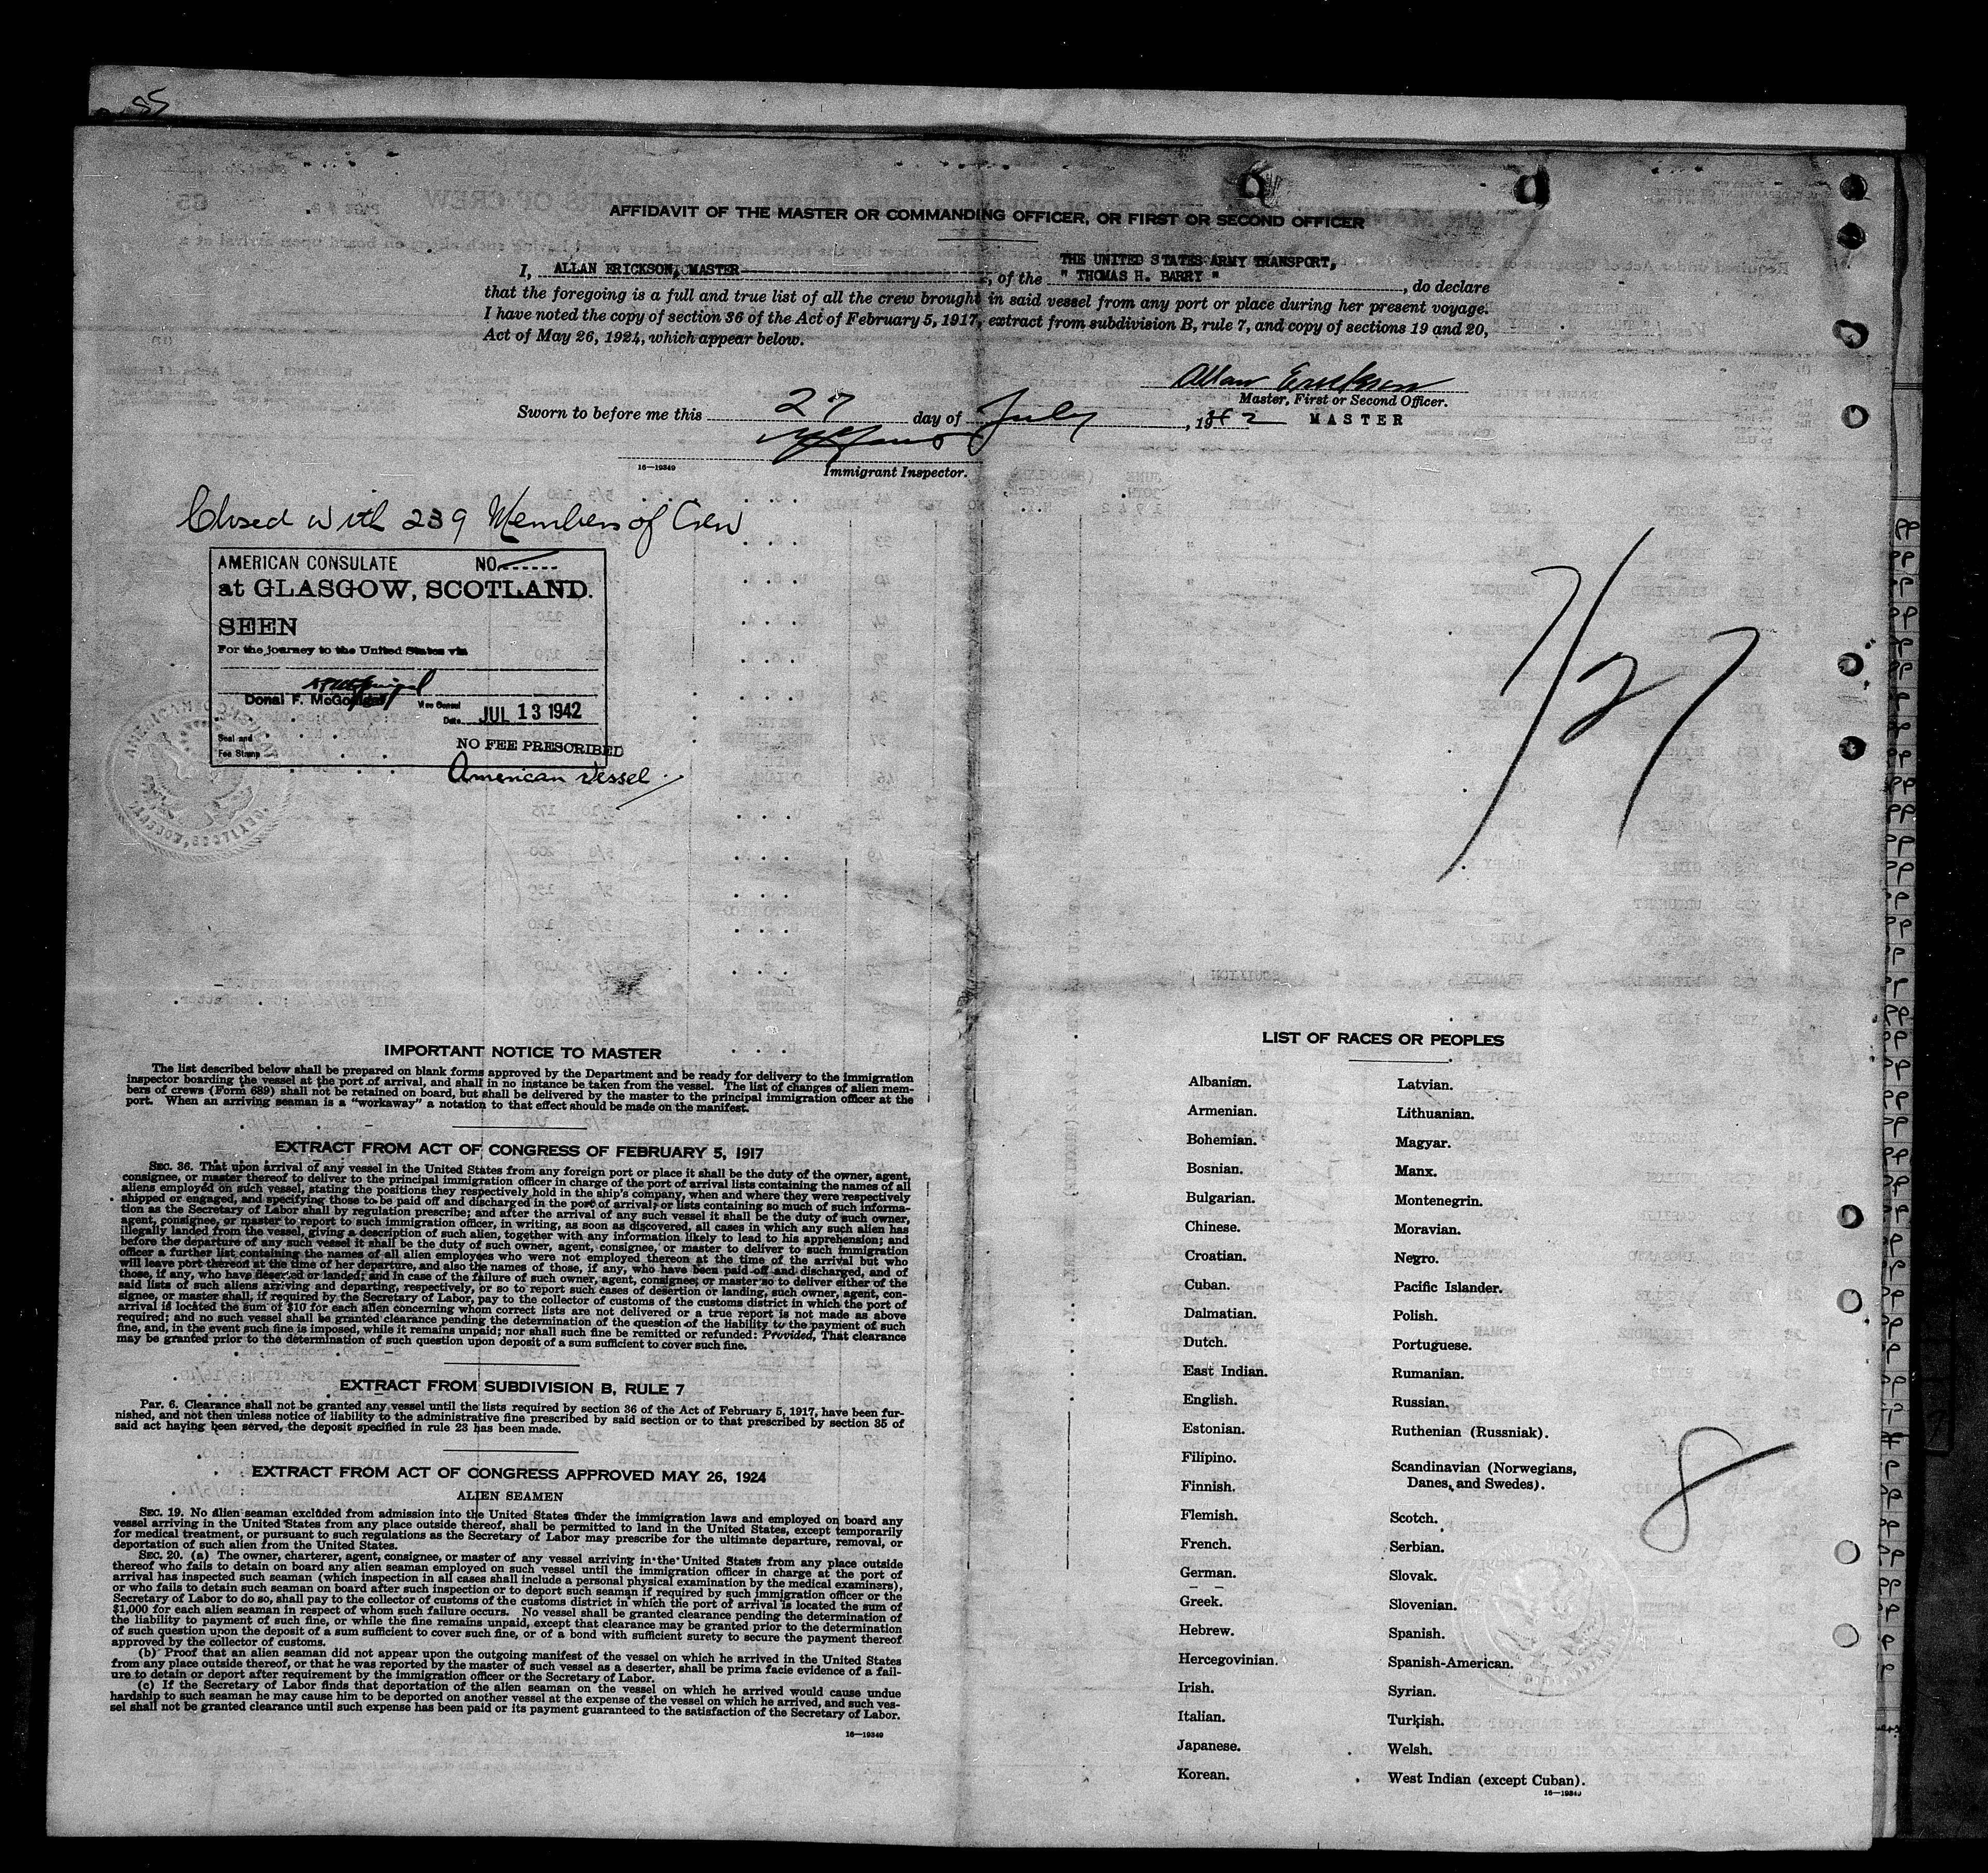 85
AFFIDAVIT OF THE MASTER OR COMMANDING OFFICER, OR FIRST OR SECOND OFFICER
I, ALLAN ERICKSON, MASTER, of the THE UNITED STATES ARMY TRANSPORT, " THOMAS H. BARRY ", do declare
that the foregoing is a full and true list of all the crew brought in said vessel from any port or place during her present voyage.
I have noted the copy of section 36 of the Act of February 5, 1917, extract from subdivision B, rule 7, and copy of sections 19 and 20,
Act of May 26, 1924, which appear below.
Allan Erickson
Master, First or Second Officer.
Sworn to before me this 27 day of July, 1942 MASTER
16—19349 Immigrant Inspector.
Closed with 239 Members of Crew
AMERICAN CONSULATE NO.
at GLASGOW, SCOTLAND.
SEEN
For the journey to the United States via
Donal F. McGonigal Vice Consul
Date JUL 13 1942
Seal and
Fee Stamp
NO FEE PRESCRIBED
American vessel
7/27
IMPORTANT NOTICE TO MASTER
The list described below shall be prepared on blank forms approved by the Department and be ready for delivery to the immigration
inspector boarding the vessel at the port of arrival, and shall in no instance be taken from the vessel. The list of changes of alien mem-
bers of crews (Form 689) shall not be retained on board, but shall be delivered by the master to the principal immigration officer at the
port. When an arriving seaman is a "workaway" a notation to that effect should be made on the manifest.
EXTRACT FROM ACT OF CONGRESS OF FEBRUARY 5, 1917
SEC. 36. That upon arrival of any vessel in the United States from any foreign port or place it shall be the duty of the owner, agent,
consignee, or master thereof to deliver to the principal immigration officer in charge of the port of arrival lists containing the names of all
aliens employed on such vessel, stating the positions they respectively hold in the ship's company, when and where they were respectively
shipped or engaged, and specifying those to be paid off and discharged in the port of arrival; or lists containing so much of such informa-
tion as the Secretary of Labor shall by regulation prescribe; and after the arrival of any such vessel it shall be the duty of such owner,
agent, consignee, or master to report to such immigration officer, in writing, as soon as discovered, all cases in which any such alien has
illegally landed from the vessel, giving a description of such alien, together with any information likely to lead to his apprehension; and
before the departure of any such vessel it shall be the duty of such owner, agent, consignee, or master to deliver to such immigration
officer a further list containing the names of all alien employees who were not employed thereon at the time of the arrival but who
will leave port thereon at the time of her departure, and also the names of those, if any, who have been paid off and discharged, and of
those, if any, who have deserted or landed; and in case of the failure of such owner, agent, consignee, or master so to deliver either of the
said lists of such aliens arriving and departing, respectively, or so to report such cases of desertion or landing, such owner, agent, con-
signee, or master shall, if required by the Secretary of Labor, pay to the collector of customs of the customs district in which the port of
arrival is located the sum of $10 for each alien concerning whom correct lists are not delivered or a true report is not made as above
required; and no such vessel shall be granted clearance pending the determination of the question of the liability to the payment of such
fine, and, in the event such fine is imposed, while it remains unpaid; nor shall such fine be remitted or refunded: Provided, That clearance
may be granted prior to the determination of such question upon deposit of a sum sufficient to cover such fine.
EXTRACT FROM SUBDIVISION B, RULE 7
Par. 6. Clearance shall not be granted any vessel until the lists required by section 36 of the Act of February 5, 1917, have been fur-
nished, and not then unless notice of liability to the administrative fine prescribed by said section or to that prescribed by section 35 of
said act having been served, the deposit specified in rule 23 has been made.
EXTRACT FROM ACT OF CONGRESS APPROVED MAY 26, 1924
ALIEN SEAMEN
SEC. 19. No alien seaman excluded from admission into the United States under the immigration laws and employed on board any
vessel arriving in the United States from any place outside thereof, shall be permitted to land in the United States, except temporarily
for medical treatment, or pursuant to such regulations as the Secretary of Labor may prescribe for the ultimate departure, removal, or
deportation of such alien from the United States.
SEC. 20. (a) The owner, charterer, agent, consignee, or master of any vessel arriving in the United States from any place outside
thereof who fails to detain on board any alien seaman employed on such vessel until the immigration officer in charge at the port of
arrival has inspected such seaman (which inspection in all cases shall include a personal physical examination by the medical examiners),
or who fails to detain such seaman on board after such inspection or to deport such seaman if required by such immigration officer or the
Secretary of Labor to do so, shall pay to the collector of customs of the customs district in which the port of arrival is located the sum of
$1,000 for each alien seaman in respect of whom such failure occurs. No vessel shall be granted clearance pending the determination of
the liability to payment of such fine, or while the fine remains unpaid, except that clearance may be granted prior to the determination
of such question upon the deposit of a sum sufficient to cover such fine, or of a bond with sufficient surety to secure the payment thereof
approved by the collector of customs.
(b) Proof that an alien seaman did not appear upon the outgoing manifest of the vessel on which he arrived in the United States
from any place outside thereof, or that he was reported by the master of such vessel as a deserter, shall be prima facie evidence of a fail-
ure to detain or deport after requirement by the immigration officer or the Secretary of Labor.
(c) If the Secretary of Labor finds that deportation of the alien seaman on the vessel on which he arrived would cause undue
hardship to such seaman he may cause him to be deported on another vessel at the expense of the vessel on which he arrived, and such ves-
sel shall not be granted clearance until such expense has been paid or its payment guaranteed to the satisfaction of the Secretary of Labor.
16—19349
LIST OF RACES OR PEOPLES
Albanian.
Armenian.
Bohemian.
Bosnian.
Bulgarian.
Chinese.
Croatian.
Cuban.
Dalmatian.
Dutch.
East Indian.
English.
Estonian.
Filipino.
Finnish.
Flemish.
French.
German.
Greek.
Hebrew.
Hercegovinian.
Irish.
Italian.
Japanese.
Korean.
Latvian.
Lithuanian.
Magyar.
Manx.
Montenegrin.
Moravian.
Negro.
Pacific Islander.
Polish.
Portuguese.
Rumanian.
Russian.
Ruthenian (Russniak).
Scandinavian (Norwegians,
Danes, and Swedes).
Scotch.
Serbian.
Slovak.
Slovenian.
Spanish.
Spanish-American.
Syrian.
Turkish.
Welsh.
West Indian (except Cuban).
16—19349
8